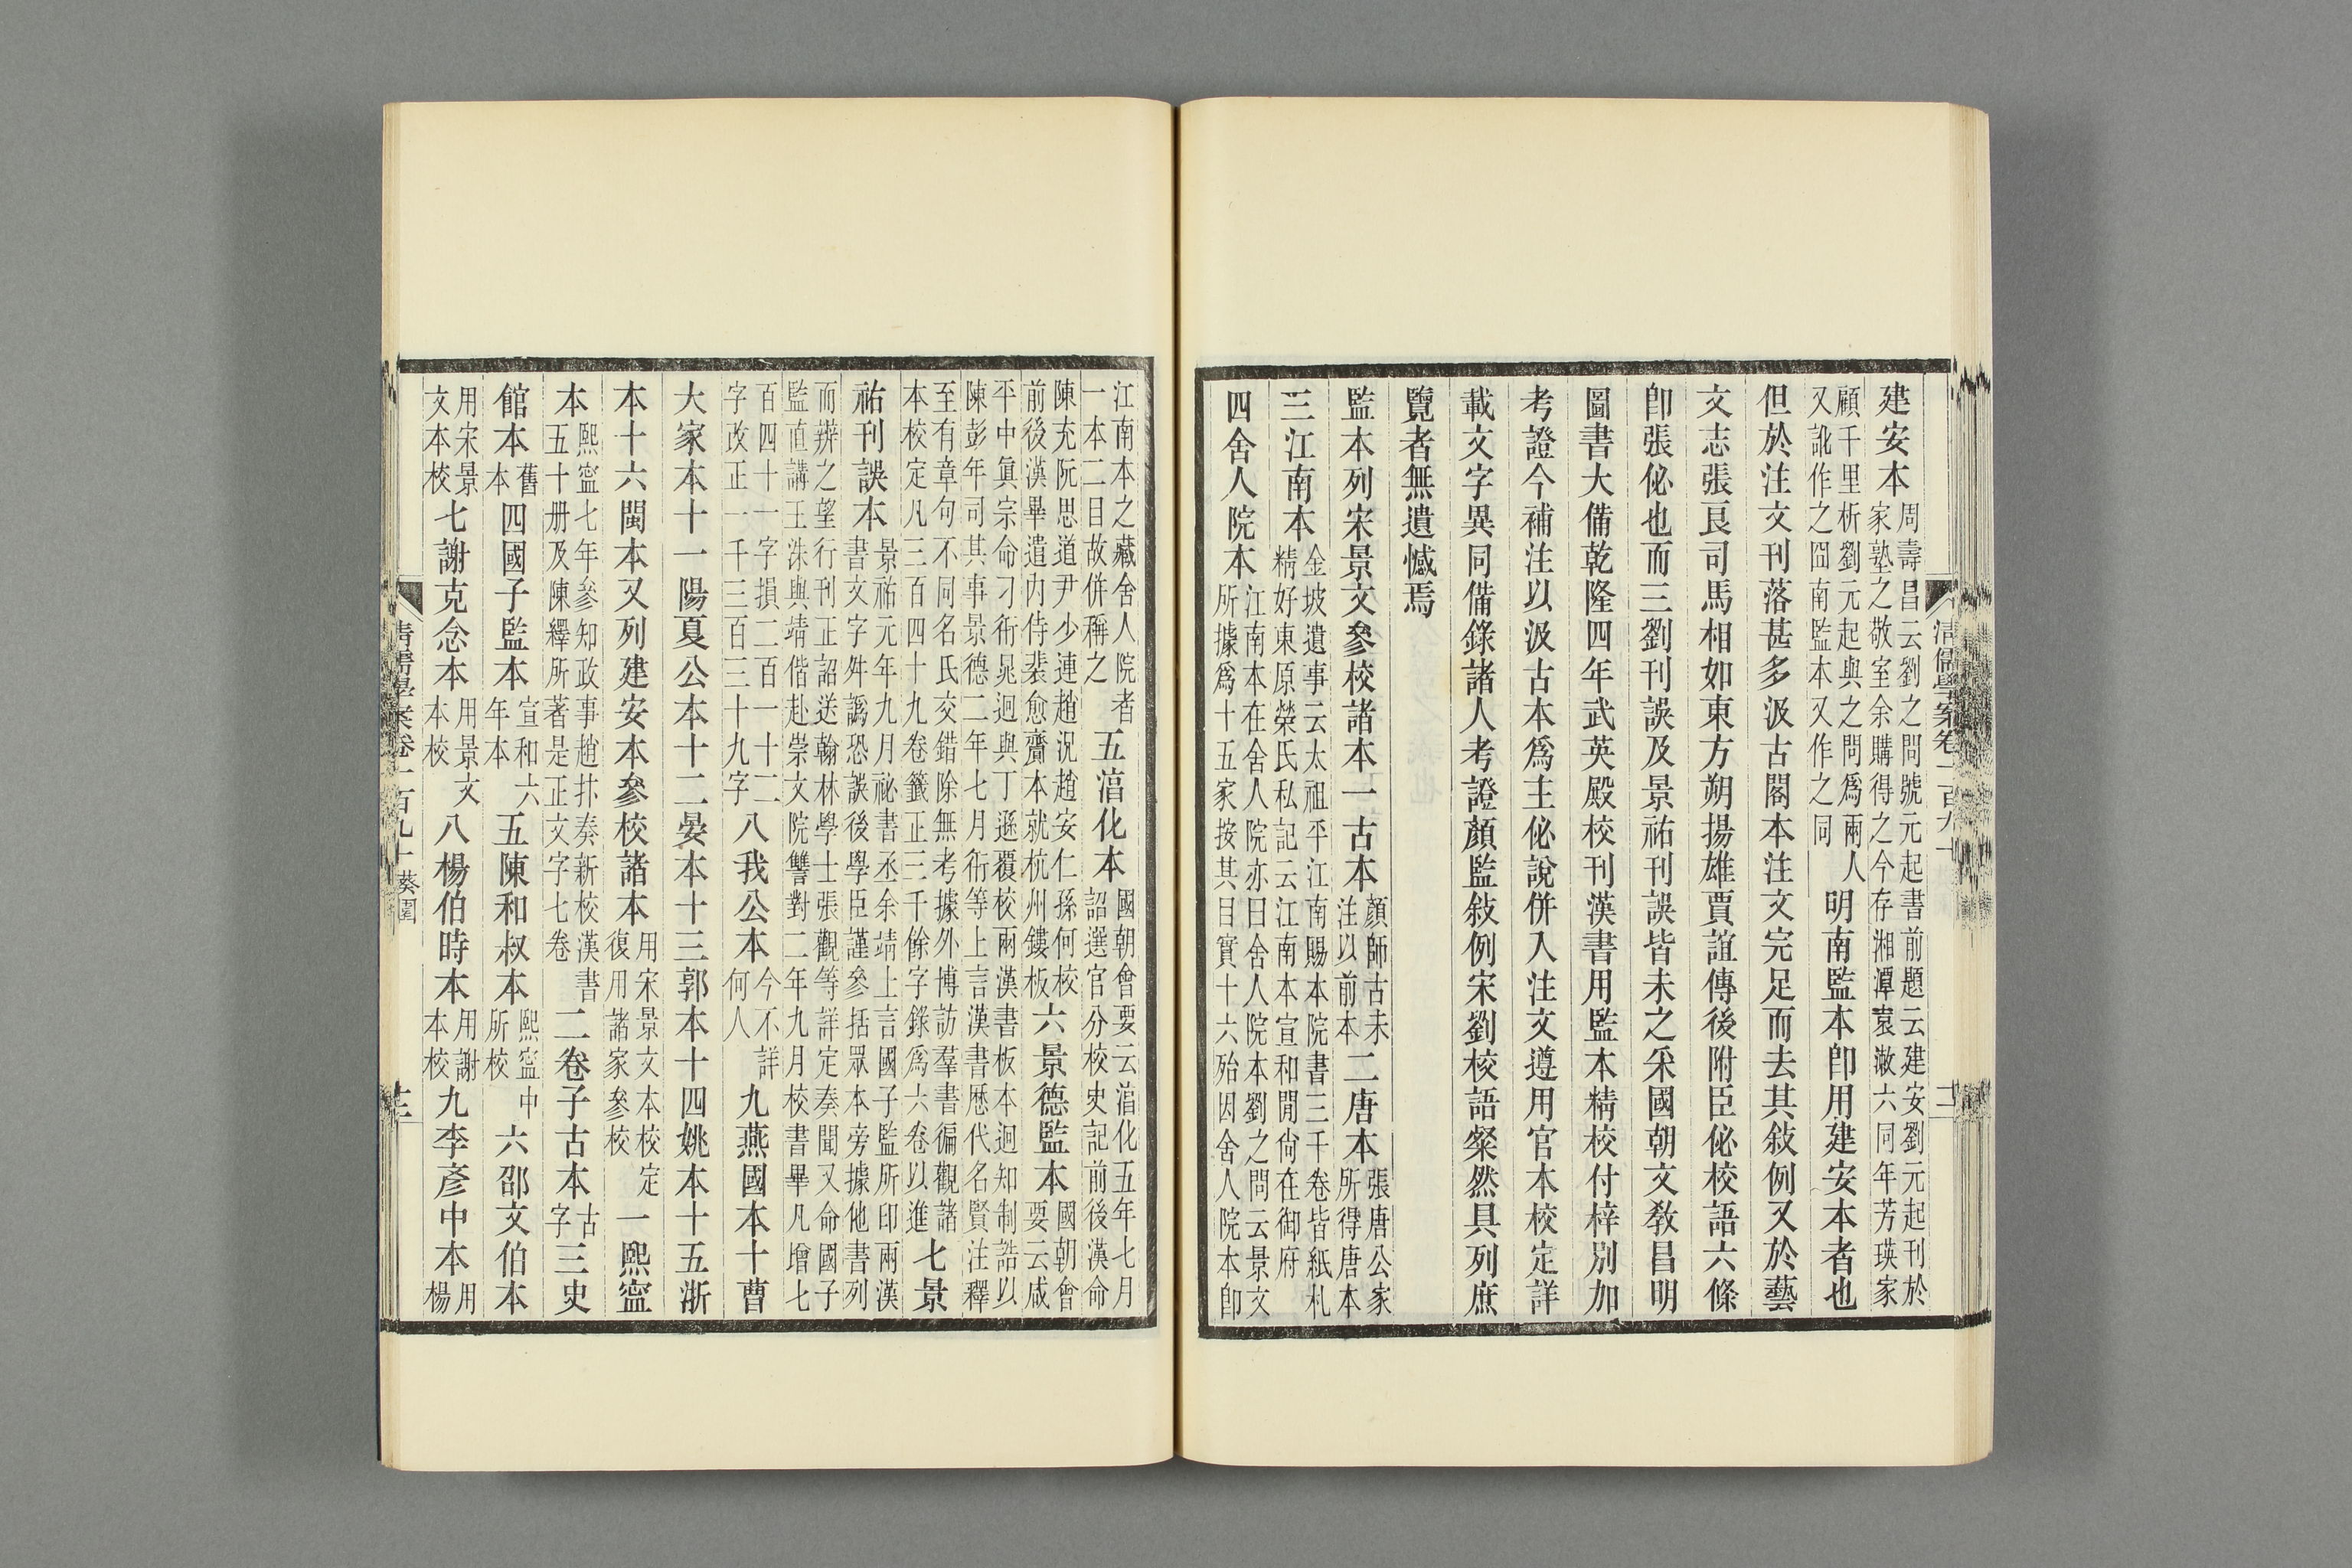 建安本周壽昌云劉之問號元起書前題云建安劉元起刊於
家塾之敬室余購得之今存湘潭袁漱六同年芳瑛家
顧千里析劉元起與之問爲兩人
又訛作之囧南監本又作之同
明南監本卽用建安本者也
但於注文刊落甚多汲古閣本注文完足而去其敍例又於藝
文志張良司馬相如東方朔揚雄賈誼傳後附臣佖校語六條
卽張佖也而三劉刊誤及景祐刊誤皆未之采國朝文敎昌明
圖書大備乾隆四年武英殿校刊漢書用監本精校付梓別加
考證今補注以汲古本爲主佖說併入注文遵用官本校定詳
載文字異同備錄諸人考證顏監敍例宋劉校語粲然具列庶
覽者無遺憾焉
監本列宋景文參校諸本一古本顏師古未
注以前本
二唐本張唐公家
所得唐本
三江南本金坡遺事云太祖平江南賜本院書三千卷皆紙札
精好東原榮氏私記云江南本宣和閒尙在御府
四舍人院本江南本在舍人院亦曰舍人院本劉之問云景文
所據爲十五家按其目實十六殆因舍人院本卽
江南本之藏舍人院者
一本二目故併稱之
五湻化本國朝會要云湻化五年七月
詔選官分校史記前後漢命
陳充阮思道尹少連趙況趙安仁孫何校
前後漢畢遣内侍裴愈齎本就杭州鏤板
六景德監本國朝會
要云咸
平中眞宗命刁衎晁迥與丁遜覆校兩漢書板本迥知制誥以
陳彭年司其事景德二年七月衎等上言漢書歷代名賢注釋
至有章句不同名氏交錯除無考據外博訪羣書徧觀諸
本校定凡三百四十九卷籤正三千餘字錄爲六卷以進
七景
祐刊誤本景祐元年九月祕書丞余靖上言國子監所印兩漢
書文字舛譌恐誤後學臣謹參括眾本旁據他書列
而辨之望行刊正詔送翰林學士張觀等詳定奏聞又命國子
監直講王洙與靖偕赴崇文院讐對二年九月校書畢凡增七
百四十一字損二百一十二
字改正一千三百三十九字
八我公本今不詳
何人
九燕國本十曹
大家本十一陽夏公本十二晏本十三郭本十四姚本十五浙
本十六閩本又列建安本參校諸本用宋景文本校定
復用諸家參校
一熙寍
本熙寍七年參知政事趙抃奏新校漢書
五十册及陳繹所著是正文字七卷
二卷子古本古
字
三史
館本舊
本
四國子監本宣和六
年本
五陳和叔本熙寍中
所校
六邵文伯本
用宋景
文本校
七謝克念本用景文
本校
八楊伯時本用謝
本校
九李彥中本用
楊
清儒學案卷一百九十 葵園